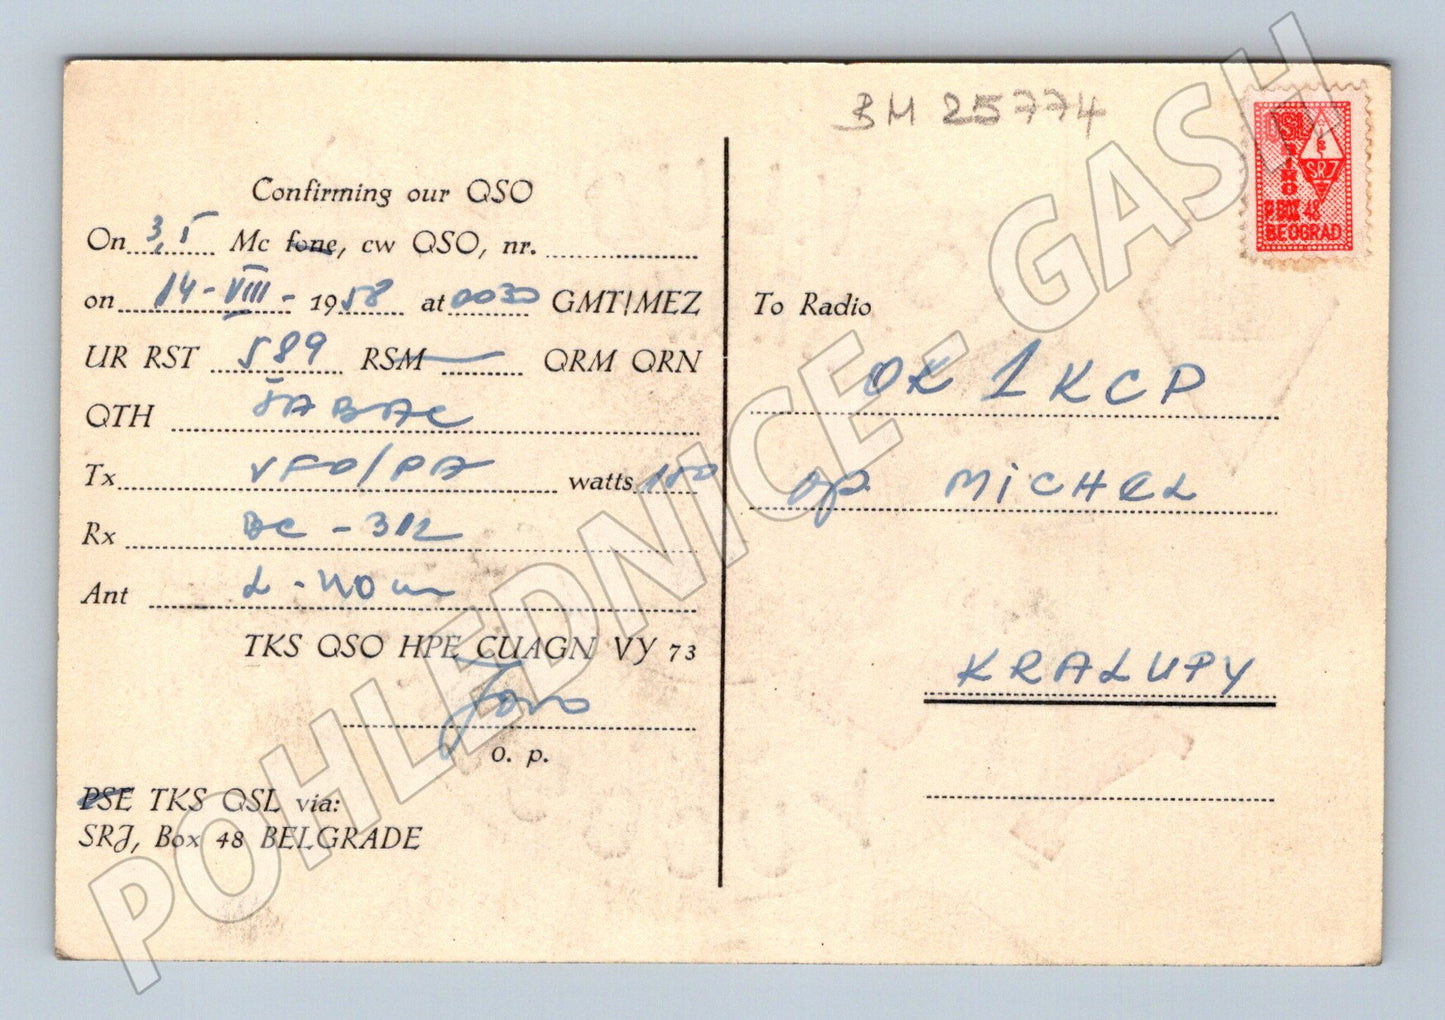 BM 25774
Confirming our QSO
On 3,5 Mc fone, cw QSO, nr.
on 14-VIII- 1958 at 0030 GMT/MEZ
UR RST 589 RSM QRM QRN
QTH ŠABAC
Tx VFO/PA watts
Rx BC-312
Ant
TKS QSO HPE CUAGN VY 73
o. p.
PSE TKS QSL via:
SRJ, Box 48 BELGRADE
QSL
BIRO
SRJ
P.BOX 48
BEOGRAD
To Radio
OK1KCP
op MICHEL
KRALUPY
POHLEDNICE - GASH